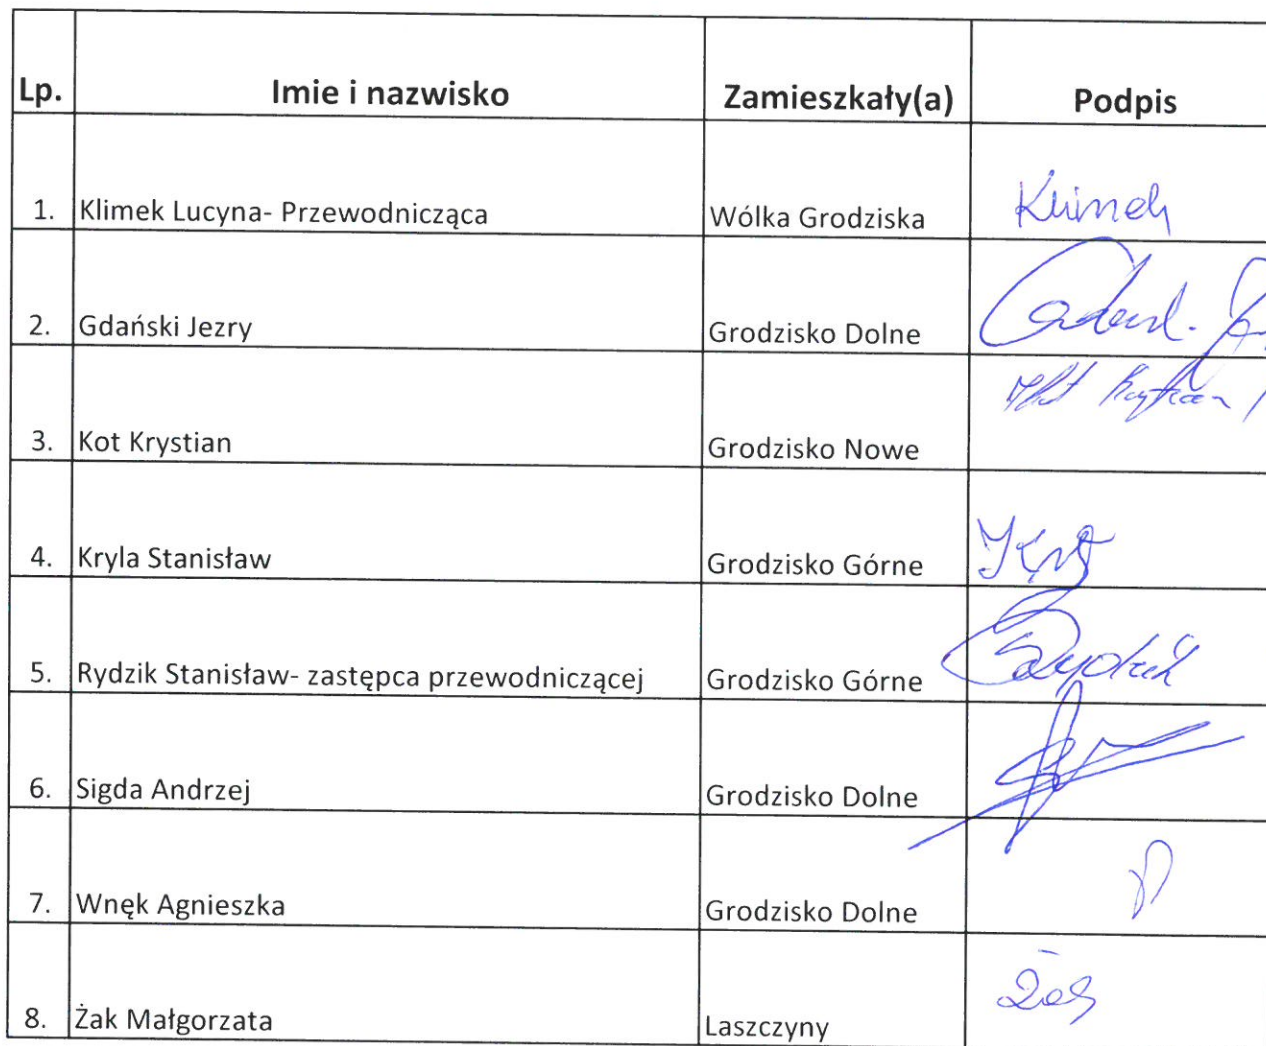 Lp. Imie i nazwisko Zamieszkały(a) Podpis
1. Klimek Lucyna- Przewodnicząca Wólka Grodziska Klimek
2. Gdański Jezry Grodzisko Dolne
3. Kot Krystian Grodzisko Nowe Kot Krystian
4. Kryla Stanisław Grodzisko Górne
5. Rydzik Stanisław- zastępca przewodniczącej Grodzisko Górne Rydzik
6. Sigda Andrzej Grodzisko Dolne
7. Wnęk Agnieszka Grodzisko Dolne
8. Żak Małgorzata Laszczyny Żak